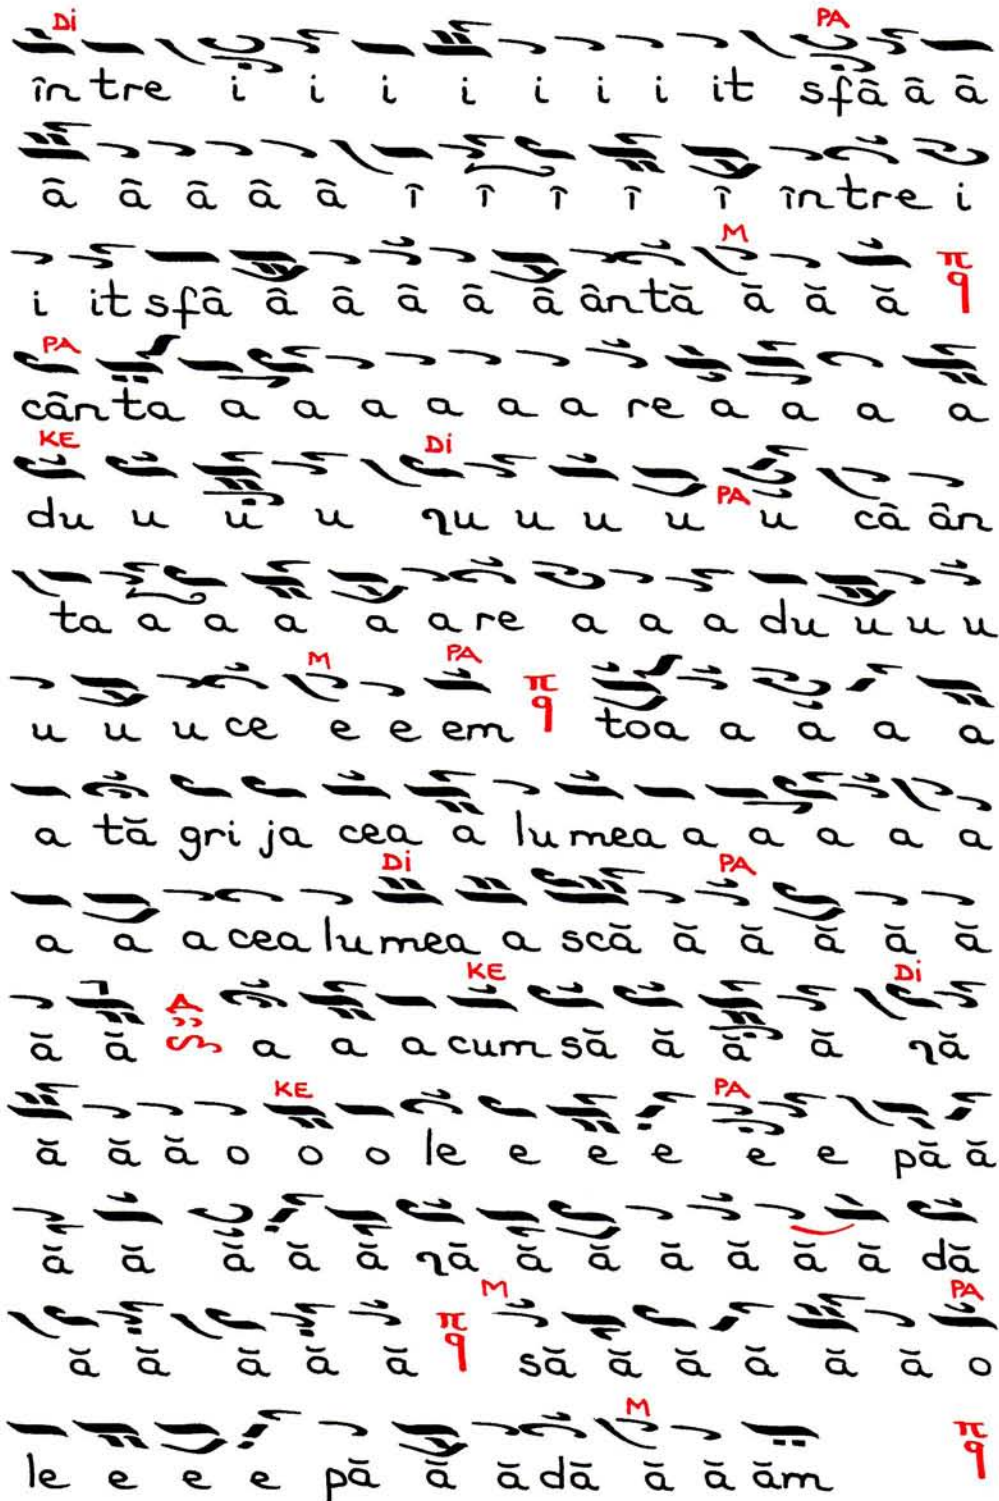 Di PA
între i i i i i i i it sfâ â â
â â â â â î î î î î între i
M
i it sfâ â â â â â ântă ă ă ă π q
PA
cânta a a a a a a re a a a a
KE Di
du u u u ru u u u u câ ân
PA
ta a a a a are a a a du u u u
M PA
u u u ce e e em π q toa a a a a
a tă gri ja cea a lu mea a a a a a
Di PA
a a a cea lu mea a scă ă ă ă ă ă
KE Di
ă ă a a a cum să ă ă ă ră
KE PA
ă ă ă o o o le e e e e e pă ă
ă ă ă ă ă ră ă ă ă ă ă ă dă
M PA
ă ă ă ă ă π q să ă ă ă ă ă o
M
le e e e pă ă ă dă ă ă ăm π q